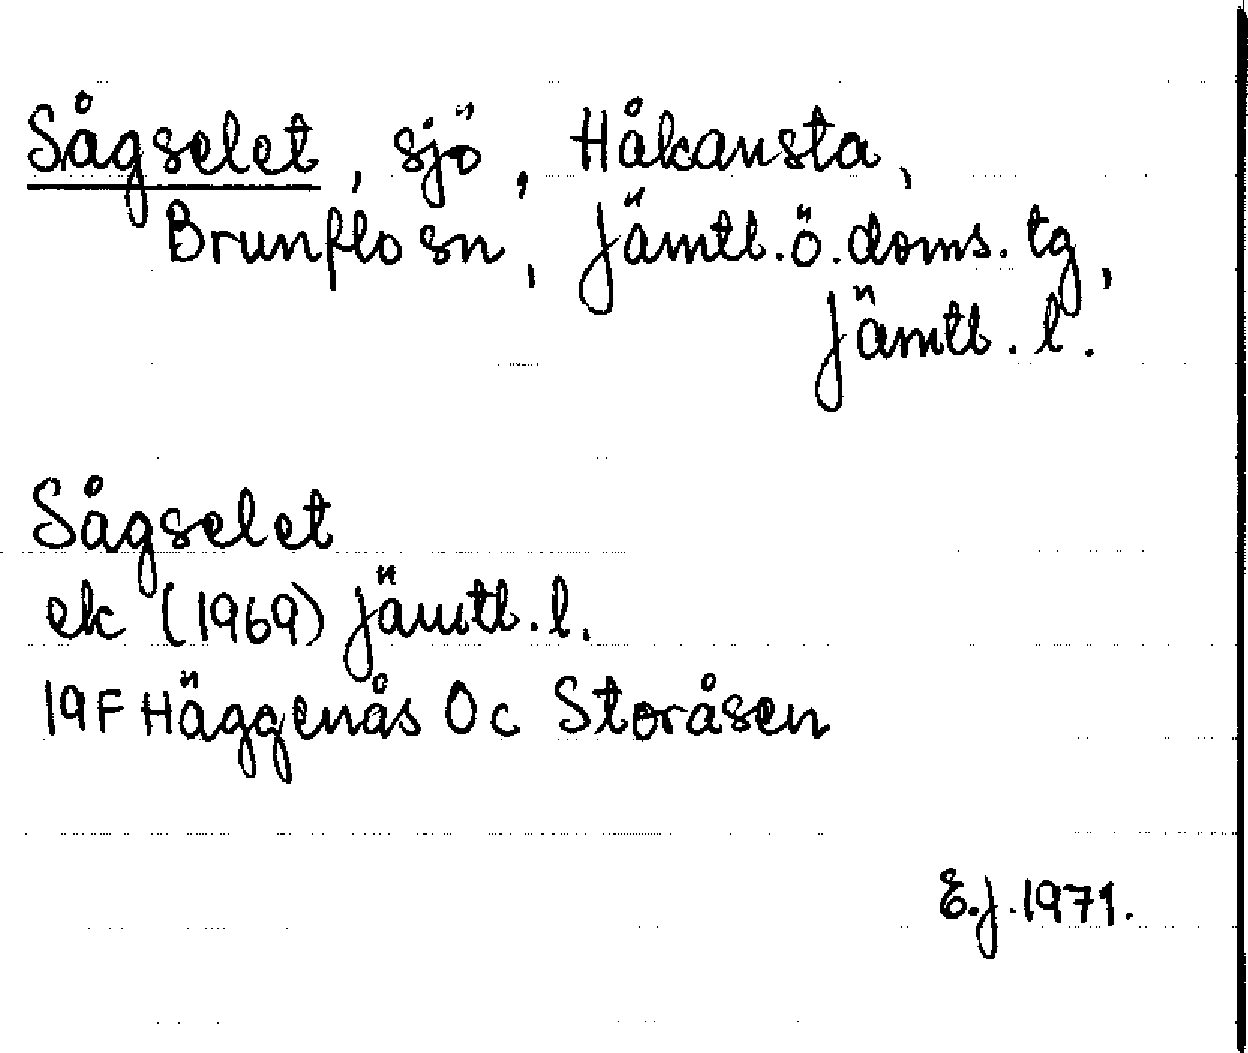 Sågselet, sjö, Håkansta,
Brunflo sn, Jämtl.ö.doms.tg,
Jämtl.l.
Sågselet
ek (1969) Jämtl.l.
19F Häggenås 0c Storåsen
E.J.1971.